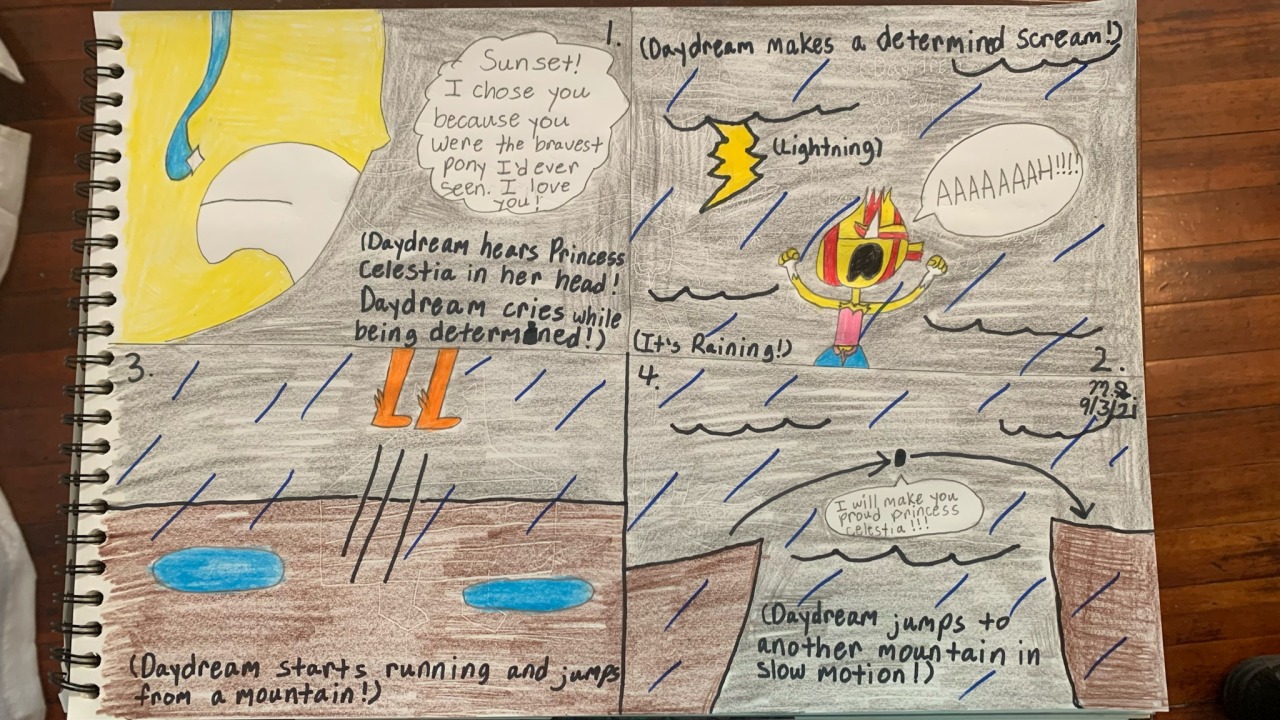 1.
Sunset!
I chose you
because you
were the bravest
pony I'd ever
seen. I love
you!
(Daydream hears Princess
Celestia in her head!
Daydream cries while
being determined!)
(Daydream makes a determind scream!)
(Lightning)
AAAAAAAH!!!!
(It's Raining!)
2.
3.
(Daydream starts running and jumps
from a mountain!)
4.
M.S.
9/3/21
I will make you
proud princess
celestia!!!
(Daydream jumps to
another mountain in
slow motion!)